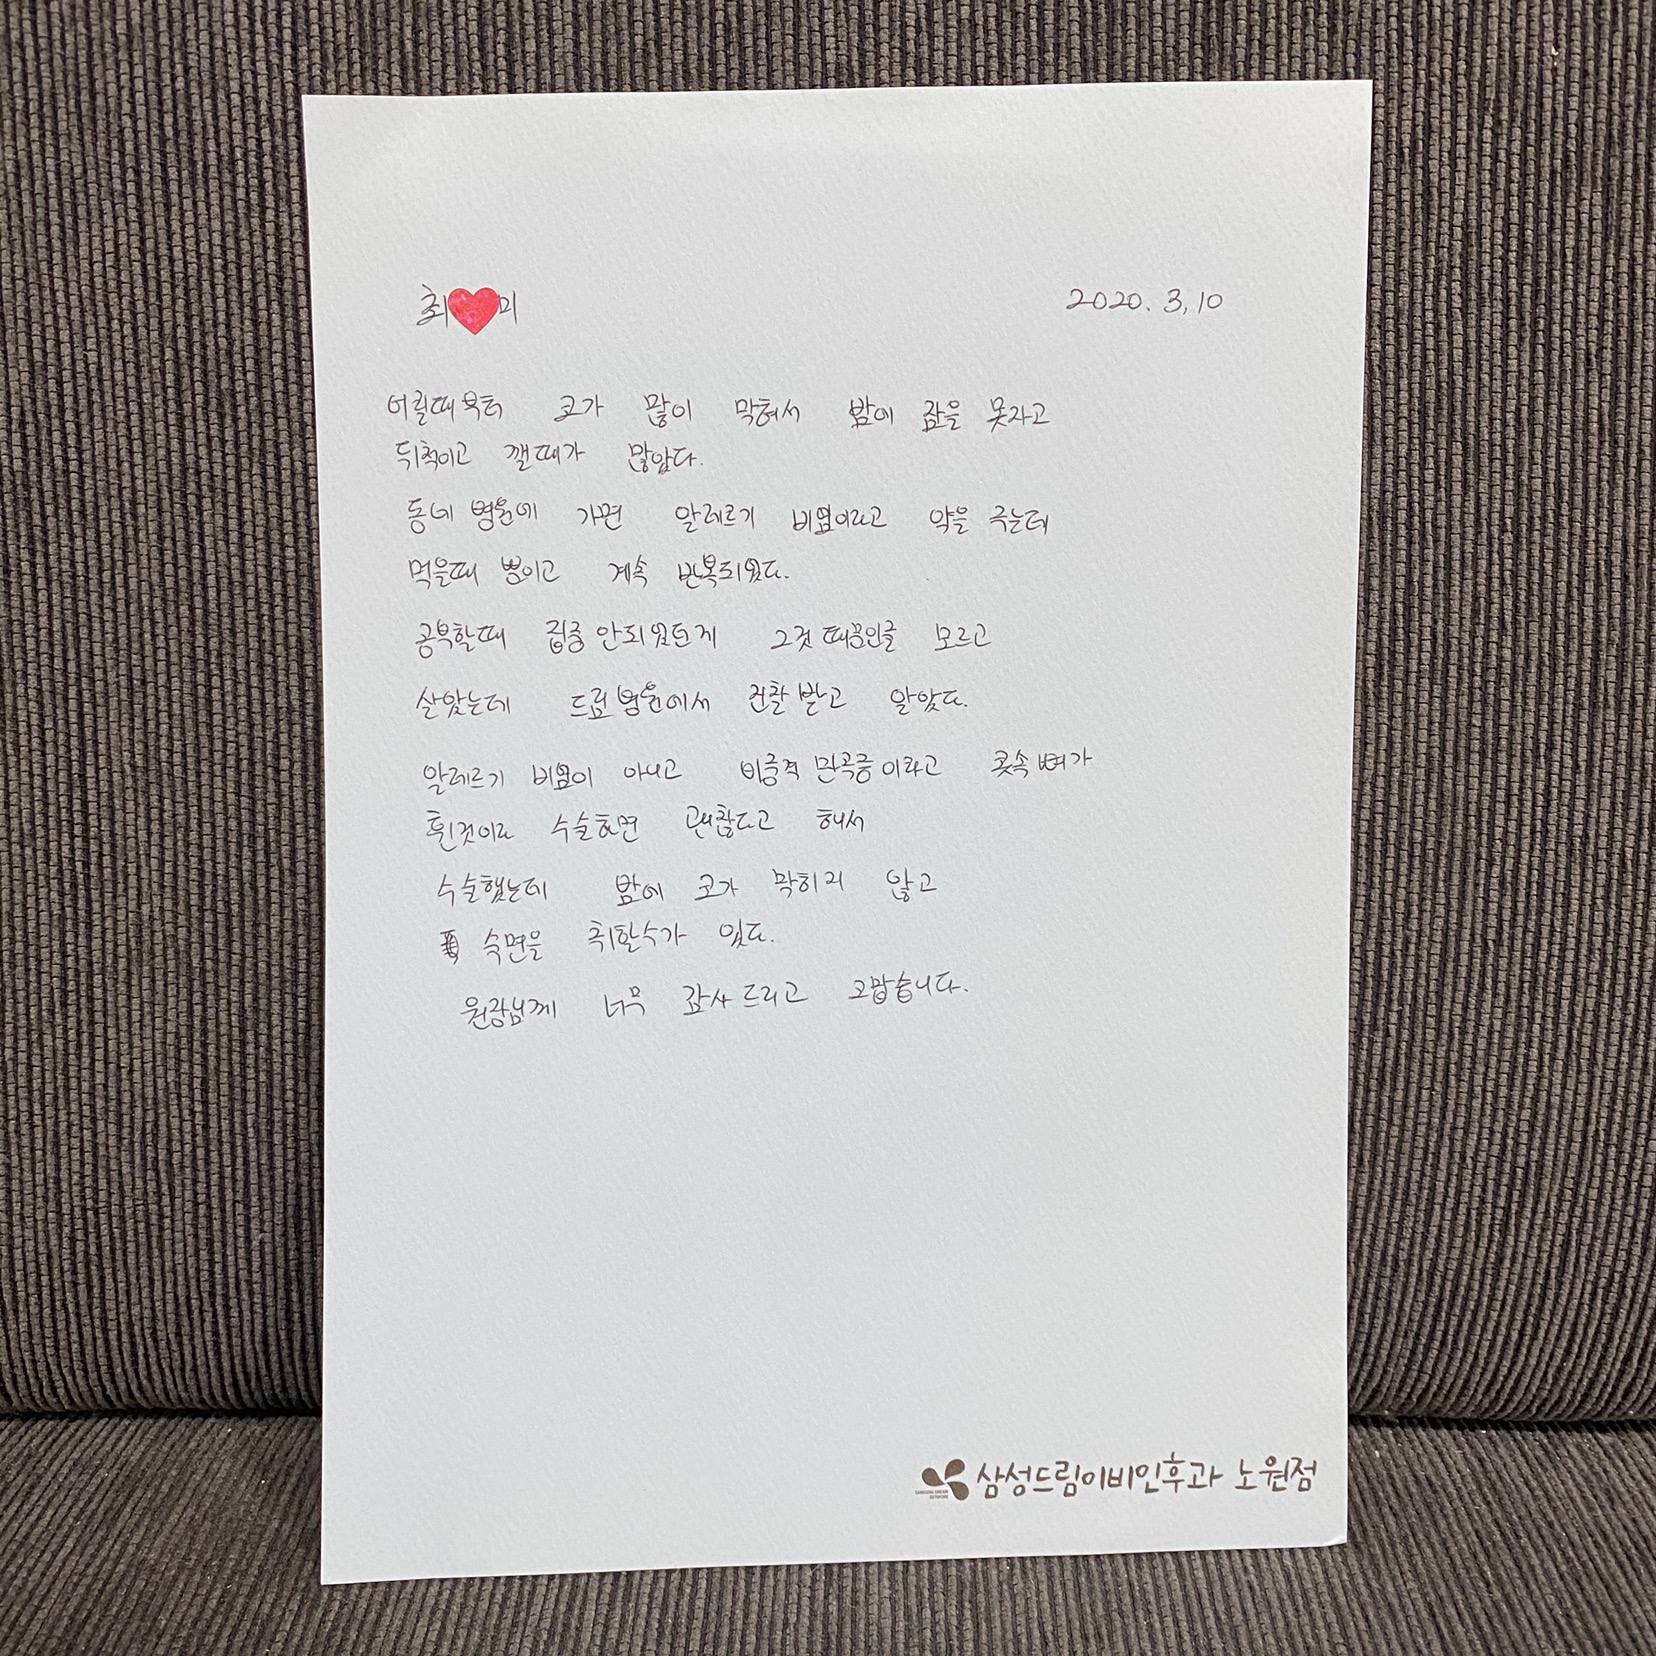 최❤️미 2020. 3, 10
어릴때부터 코가 많이 막혀서 밤에 잠을 못자고
뒤척이고 깰때가 많았다.
동네 병원에 가면 알레르기 비염이라고 약을 주는데
먹을때 뿐이고 계속 반복되었다.
공부할때 집중 안되었던게 그것 때문인줄 모르고
살았는데 드림병원에서 진찰받고 알았다.
알레르기 비염이 아니고 비중격 만곡증이라고 콧속 뼈가
휜것이라 수술하면 괜찮다고 해서
수술했는데 밤에 코가 막히지 않고
숙면을 취할수가 있다.
원장님께 너무 감사드리고 고맙습니다.
삼성드림이비인후과 노원점